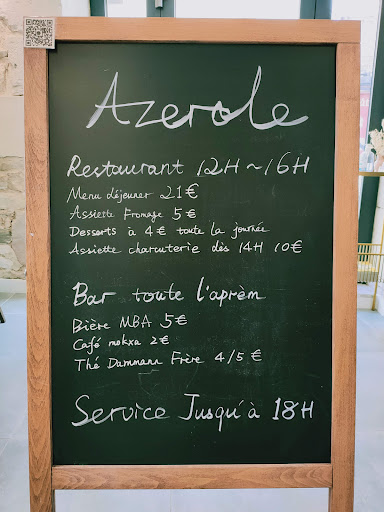 Azerole
Restaurant 12H ~ 16H
Menu déjeuner 21€
Assiette Fromage 5€
Desserts à 4€ toute la journée
Assiette charcuterie dès 14H 10€
Bar toute l'aprèm
Bière MBA 5€
Café mokxa 2€
Thé Dammann Frère 4/5 €
Service Jusqu'à 18H